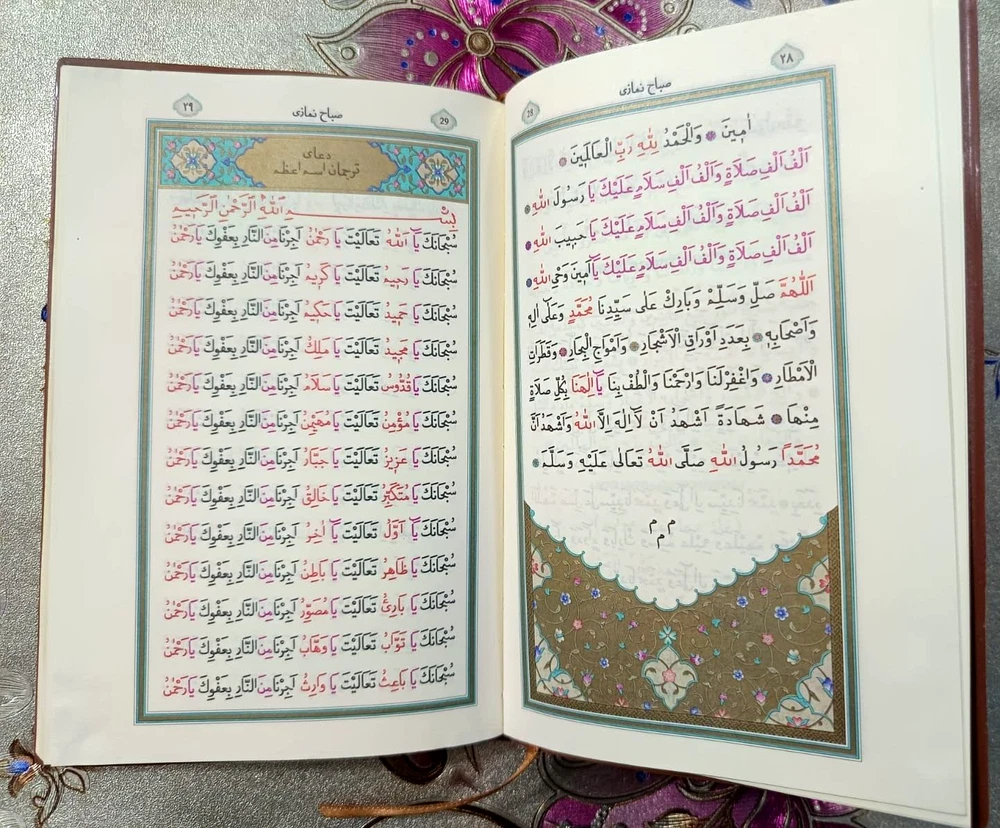 ٢٨
صباح نمازی
28
اٰمِينَ ۞ وَالْحَمْدُ لِلّٰهِ رَبِّ الْعَالَمِينَ ۞
اَلْفُ اَلْفِ صَلَاةٍ وَاَلْفُ اَلْفِ سَلَامٍ عَلَيْكَ يَا رَسُولَ اللّٰهِ ۞
اَلْفُ اَلْفِ صَلَاةٍ وَاَلْفُ اَلْفِ سَلَامٍ عَلَيْكَ يَا حَبِيبَ اللّٰهِ ۞
اَلْفُ اَلْفِ صَلَاةٍ وَاَلْفُ اَلْفِ سَلَامٍ عَلَيْكَ يَا اَمِينَ وَحْيِ اللّٰهِ ۞
اَللّٰهُمَّ صَلِّ وَسَلِّمْ وَبَارِكْ عَلٰى سَيِّدِنَا مُحَمَّدٍ وَعَلٰى اٰلِهِ
وَاَصْحَابِهِ ۞ بِعَدَدِ اَوْرَاقِ الْاَشْجَارِ ۞ وَاَمْوَاجِ الْبِحَارِ ۞ وَقَطَرَاتِ
الْاَمْطَارِ ۞ وَاغْفِرْلَنَا وَارْحَمْنَا وَالْطُفْ بِنَا يَا اِلٰهَنَا بِكُلِّ صَلَاةٍ
مِنْهَا ۞ شَهَادَةً اَشْهَدُ اَنْ لَا اِلٰهَ اِلَّا اللّٰهُ وَاَشْهَدُ اَنَّ
مُحَمَّدًا رَسُولُ اللّٰهِ صَلَّى اللّٰهُ تَعَالٰى عَلَيْهِ وَسَلَّمَ ۞
م م
م
٢٩
صباح نمازی
29
دعای
ترجمان اسم اعظم
بِسْمِ اللّٰهِ الرَّحْمٰنِ الرَّحِيمِ
سُبْحَانَكَ يَا اَللّٰهُ تَعَالَيْتَ يَا رَحْمٰنُ اَجِرْنَا مِنَ النَّارِ بِعَفْوِكَ يَا رَحْمٰنُ
سُبْحَانَكَ يَا رَحِيمُ تَعَالَيْتَ يَا كَرِيمُ اَجِرْنَا مِنَ النَّارِ بِعَفْوِكَ يَا رَحْمٰنُ
سُبْحَانَكَ يَا حَمِيدُ تَعَالَيْتَ يَا حَكِيمُ اَجِرْنَا مِنَ النَّارِ بِعَفْوِكَ يَا رَحْمٰنُ
سُبْحَانَكَ يَا مَجِيدُ تَعَالَيْتَ يَا مَلِكُ اَجِرْنَا مِنَ النَّارِ بِعَفْوِكَ يَا رَحْمٰنُ
سُبْحَانَكَ يَا قُدُّوسُ تَعَالَيْتَ يَا سَلَامُ اَجِرْنَا مِنَ النَّارِ بِعَفْوِكَ يَا رَحْمٰنُ
سُبْحَانَكَ يَا مُؤْمِنُ تَعَالَيْتَ يَا مُهَيْمِنُ اَجِرْنَا مِنَ النَّارِ بِعَفْوِكَ يَا رَحْمٰنُ
سُبْحَانَكَ يَا عَزِيزُ تَعَالَيْتَ يَا جَبَّارُ اَجِرْنَا مِنَ النَّارِ بِعَفْوِكَ يَا رَحْمٰنُ
سُبْحَانَكَ يَا مُتَكَبِّرُ تَعَالَيْتَ يَا خَالِقُ اَجِرْنَا مِنَ النَّارِ بِعَفْوِكَ يَا رَحْمٰنُ
سُبْحَانَكَ يَا اَوَّلُ تَعَالَيْتَ يَا اٰخِرُ اَجِرْنَا مِنَ النَّارِ بِعَفْوِكَ يَا رَحْمٰنُ
سُبْحَانَكَ يَا ظَاهِرُ تَعَالَيْتَ يَا بَاطِنُ اَجِرْنَا مِنَ النَّارِ بِعَفْوِكَ يَا رَحْمٰنُ
سُبْحَانَكَ يَا بَارِئُ تَعَالَيْتَ يَا مُصَوِّرُ اَجِرْنَا مِنَ النَّارِ بِعَفْوِكَ يَا رَحْمٰنُ
سُبْحَانَكَ يَا تَوَّابُ تَعَالَيْتَ يَا وَهَّابُ اَجِرْنَا مِنَ النَّارِ بِعَفْوِكَ يَا رَحْمٰنُ
سُبْحَانَكَ يَا بَاعِثُ تَعَالَيْتَ يَا وَارِثُ اَجِرْنَا مِنَ النَّارِ بِعَفْوِكَ يَا رَحْمٰنُ